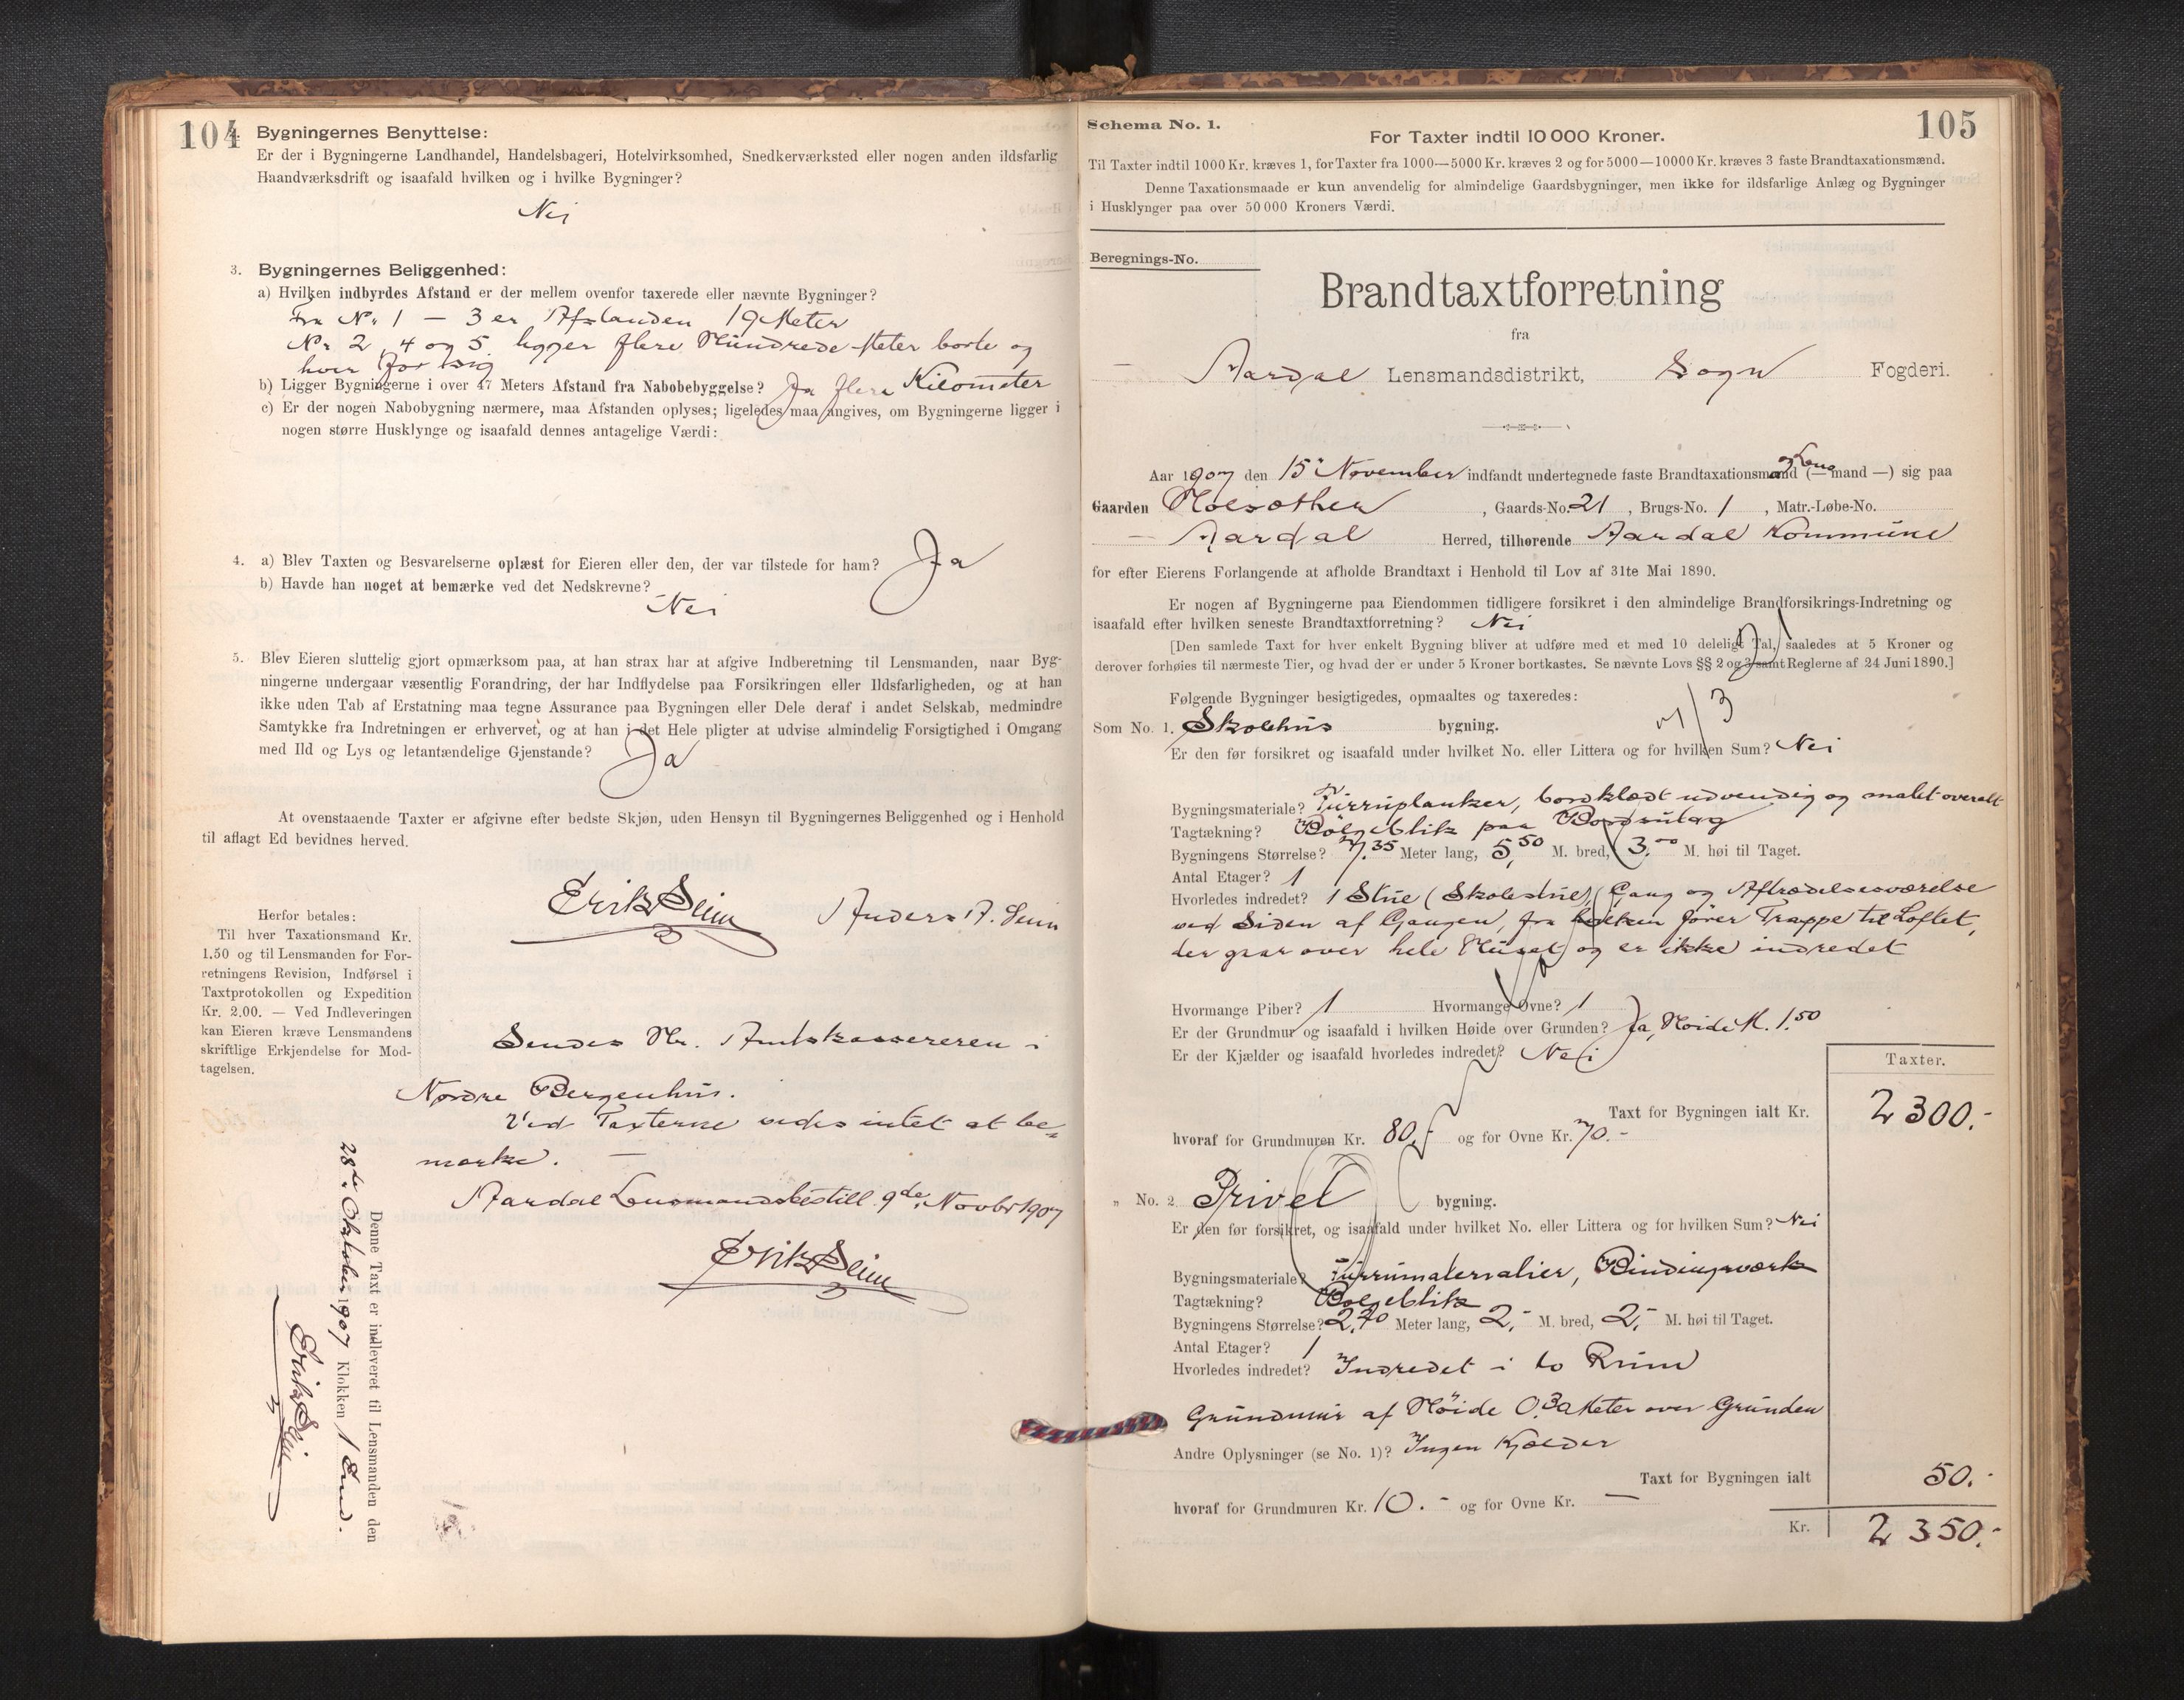 104
Bygningernes Benyttelse:
Er der i Bygningerne Landhandel, Handelsbageri, Hotelvirksomhed, Snedkerværksted eller nogen anden ildsfarlig
Haandværksdrift og isaafald hvilken og i hvilke Bygninger?
Nei
3. Bygningernes Beliggenhed:
a) Hvilken indbyrdes Afstand er der mellem ovenfor taxerede eller nævnte Bygninger?
Fra No 1 — 3 er Afstanden 19 Meter
No 2, 4 og 5 ligger flere Hundrede Meter borte og
hver for sig
b) Ligger Bygningerne i over 47 Meters Afstand fra Nabobebyggelse? Ja flere Kilometer
c) Er der nogen Nabobygning nærmere, maa Afstanden oplyses; ligeledes maa angives, om Bygningerne ligger i
nogen større Husklynge og isaafald dennes antagelige Værdi:
4. a) Blev Taxten og Besvarelserne oplæst for Eieren eller den, der var tilstede for ham? Ja
b) Havde han noget at bemærke ved det Nedskrevne?
Nei
5. Blev Eieren sluttelig gjort opmærksom paa, at han strax har at afgive Indberetning til Lensmanden, naar Byg-
ningerne undergaar væsentlig Forandring, der har Indflydelse paa Forsikringen eller Ildsfarligheden, og at han
ikke uden Tab af Erstatning maa tegne Assurance paa Bygningen eller Dele deraf i andet Selskab, medmindre
Samtykke fra Indretningen er erhvervet, og at han i det Hele pligter at udvise almindelig Forsigtighed i Omgang
med Ild og Lys og letantændelige Gjenstande?
Ja
At ovenstaaende Taxter er afgivne efter bedste Skjøn, uden Hensyn til Bygningernes Beliggenhed og i Henhold
til aflagt Ed bevidnes herved.
Erik Seim Anders A. Seim
Herfor betales:
Til hver Taxationsmand Kr.
1.50 og til Lensmanden for For-
retningens Revision, Indførsel i
Taxtprotokollen og Expedition
Kr. 2.00. — Ved Indleveringen
kan Eieren kræve Lensmandens
skriftlige Erkjendelse for Mod-
tagelsen.
Sendes Hr. Amtskassereren i
Nordre Bergenhus.
Ved Taxterne vides intet at be-
mærke. —
Aardal Lensmandsbestill. 9de Novbr 1907
Erik Seim
Denne Taxt er indleveret til Lensmanden den
28de Oktober 1907 Klokken 1 Em.
Erik Seim
105
Schema No. 1.
For Taxter indtil 10 000 Kroner.
Til Taxter indtil 1000 Kr. kræves 1, for Taxter fra 1000—5000 Kr. kræves 2 og for 5000—10000 Kr. kræves 3 faste Brandtaxationsmænd.
Denne Taxationsmaade er kun anvendelig for almindelige Gaardsbygninger, men ikke for ildsfarlige Anlæg og Bygninger
i Husklynger paa over 50 000 Kroners Værdi.
Beregnings-No.
Brandtaxtforretning
fra
Aardal Lensmandsdistrikt, Sogn Fogderi.
Aar 1907 den 15 November indfandt undertegnede faste Brandtaxationsmænd og Lens (—mand —) sig paa
Gaarden , Gaards-No. 21 , Brugs-No. 1 , Matr.-Løbe-No.
Aardal Herred, tilhørende Aardal Kommune
for efter Eierens Forlangende at afholde Brandtaxt i Henhold til Lov af 31te Mai 1890.
Er nogen af Bygningerne paa Eiendommen tidligere forsikret i den almindelige Brandforsikrings-Indretning og
isaafald efter hvilken seneste Brandtaxtforretning? Nei
[Den samlede Taxt for hver enkelt Bygning bliver at udføre med et med 10 deleligt Tal, saaledes at 5 Kroner og
derover forhøies til nærmeste Tier, og hvad der er under 5 Kroner bortkastes. Se nævnte Lovs §§ 2 og 3 samt Reglerne af 24 Juni 1890.]
Følgende Bygninger besigtigedes, opmaaltes og taxeredes:
Som No. 1. Skolehus bygning.
Er den før forsikret og isaafald under hvilket No. eller Littera og for hvilken Sum? Nei
Bygningsmateriale? Furruplanker, bordklædt udvendig og malet overalt
Tagtækning? Bølgeblik paa Bordsulag
Bygningens Størrelse? 7.35 Meter lang, 5,50 M. bred, 3.00 M. høi til Taget.
Antal Etager? 1
Hvorledes indredet? 1 Stue (Skolestue), Gang og Aftrædelsesværelse
ved Siden af Gangen, fra hvilken fører Trappe til Loftet,
der gaar over hele Huset og er ikke indredet
Hvormange Piber? 1 Hvormange Ovne? 1
Er der Grundmur og isaafald i hvilken Høide over Grunden? Ja, Høide M. 1.50
Er der Kjælder og isaafald hvorledes indredet? Nei
Taxter.
Taxt for Bygningen ialt Kr. 2300.-
hvoraf for Grundmuren Kr. 80.- og for Ovne Kr. 70.-
" No. 2. Privet bygning.
Er den før forsikret, og isaafald under hvilket No. eller Littera og for hvilken Sum? Nei
Bygningsmateriale? Furrumaterialier, Bindingsværk
Tagtækning? Bølgeblik
Bygningens Størrelse? 2,70 Meter lang, 2,- M. bred, 2,- M. høi til Taget.
Antal Etager? 1
Hvorledes indredet? Indredet i to Rum
Grundmur af Høide 0.30 Meter over Grunden
Andre Oplysninger (se No. 1)? Ingen Kjælder
Taxt for Bygningen ialt 50.-
hvoraf for Grundmuren Kr. 10.- og for Ovne Kr. —
Kr. 2350.-